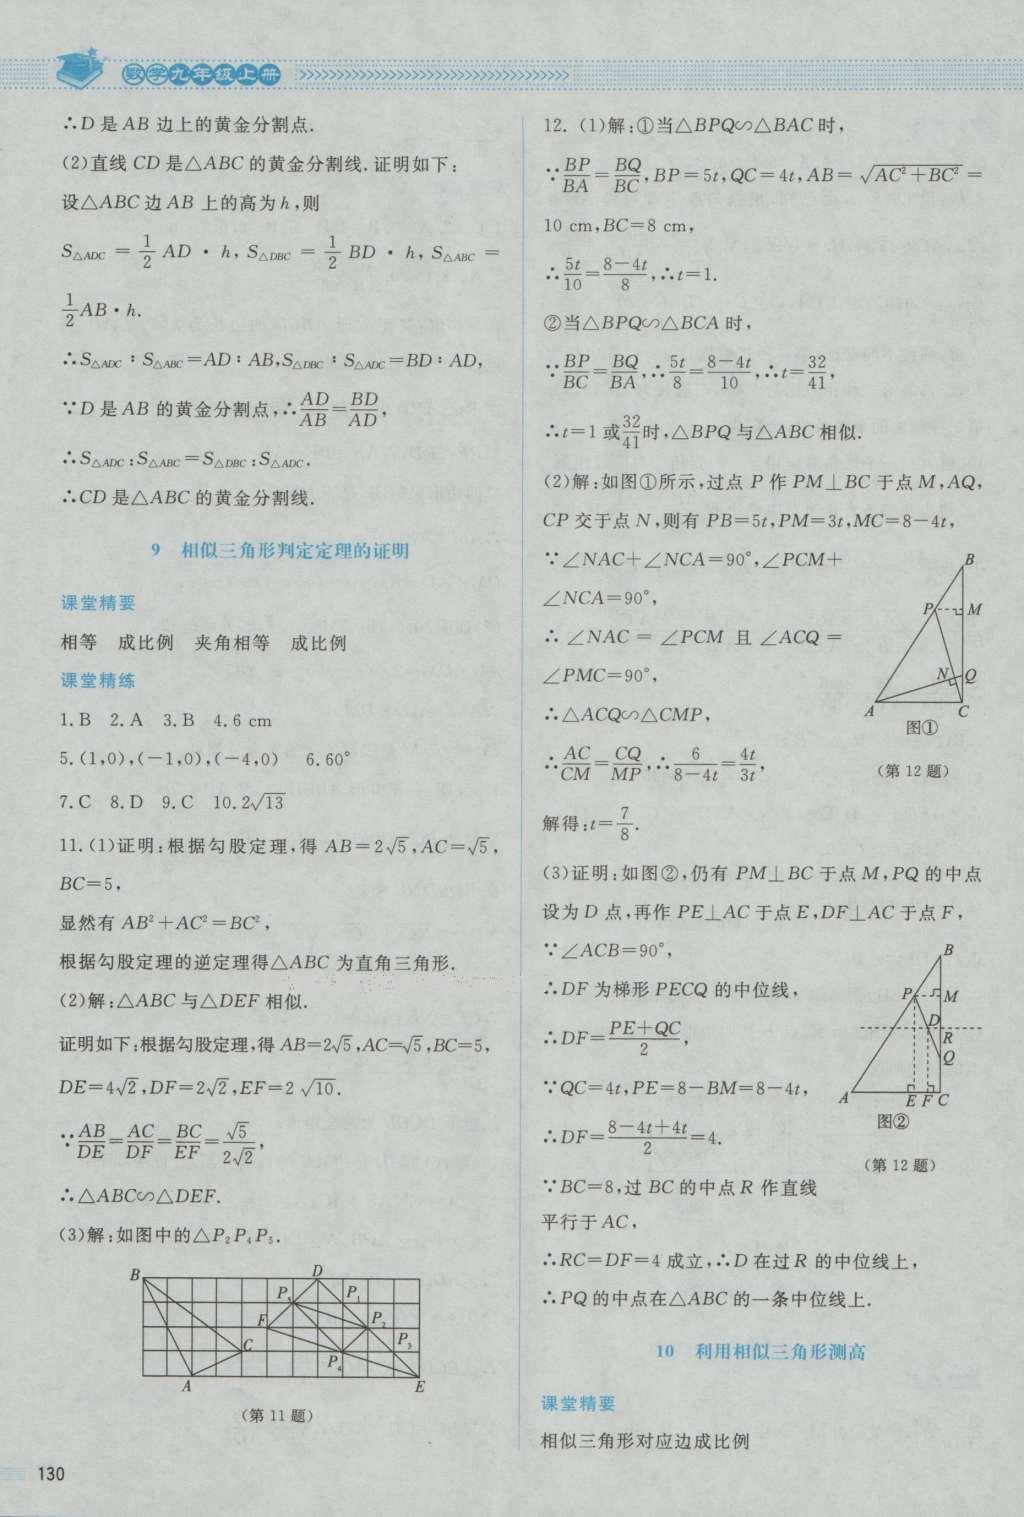 数学九年级上册
∴D是AB边上的黄金分割点.
(2)直线CD是△ABC的黄金分割线.证明如下:
设△ABC边AB上的高为h,则
S△ADC = 1/2 AD · h, S△DBC = 1/2 BD · h, S△ABC =
1/2 AB·h.
∴S△ADC：S△ABC=AD：AB,S△DBC：S△ADC=BD：AD,
∵D是AB的黄金分割点,∴AD/AB=BD/AD,
∴S△ADC:S△ABC=S△DBC:S△ADC.
∴CD是△ABC的黄金分割线.
9 相似三角形判定定理的证明
课堂精要
相等 成比例 夹角相等 成比例
课堂精练
1.B 2.A 3.B 4.6 cm
5.(1,0),(−1,0),(−4,0) 6.60°
7.C 8.D 9.C 10.2√13
11.(1)证明:根据勾股定理,得AB=2√5,AC=√5,
BC=5,
显然有AB²+AC²=BC²,
根据勾股定理的逆定理得△ABC为直角三角形.
(2)解:△ABC与△DEF相似.
证明如下:根据勾股定理,得AB=2√5,AC=√5,BC=5,
DE=4√2,DF=2√2,EF=2√10.
∵AB/DE=AC/DF=BC/EF=√5/2√2,
∴△ABC∽△DEF.
(3)解:如图中的△P₂P₄P₅.
B D
P₅ P₁
F P₂
C P₄ P₃
A E
(第11题)
130
12. (1)解:①当△BPQ∽△BAC时,
∵BP/BA=BQ/BC,BP=5t,QC=4t,AB=√(AC²+BC²)=
10 cm,BC=8 cm,
∴5t/10=(8−4t)/8,∴t=1.
②当△BPQ∽△BCA时,
∵BP/BC=BQ/BA,∴5t/8=(8−4t)/10,∴t=32/41,
∴t=1或32/41时,△BPQ与△ABC相似.
(2)解:如图①所示,过点P作PM⊥BC于点M,AQ,
CP交于点N,则有PB=5t,PM=3t,MC=8−4t,
∵∠NAC+∠NCA=90°,∠PCM+
∠NCA=90°,
∴∠NAC=∠PCM且∠ACQ=
∠PMC=90°,
∴△ACQ∽△CMP,
∴AC/CM=CQ/MP,∴6/(8−4t)=4t/3t,
解得:t=7/8.
B
P M
N Q
A C
图①
(第12题)
(3)证明:如图②,仍有PM⊥BC于点M,PQ的中点
设为D点,再作PE⊥AC于点E,DF⊥AC于点F,
∵∠ACB=90°,
∴DF为梯形PECQ的中位线,
∴DF=(PE+QC)/2,
∵QC=4t,PE=8−BM=8−4t,
∴DF=(8−4t+4t)/2=4.
∵BC=8,过BC的中点R作直线
平行于AC,
∴RC=DF=4成立,∴D在过R的中位线上,
∴PQ的中点在△ABC的一条中位线上.
B
P M
D
R
Q
A E F C
图②
(第12题)
10 利用相似三角形测高
课堂精要
相似三角形对应边成比例